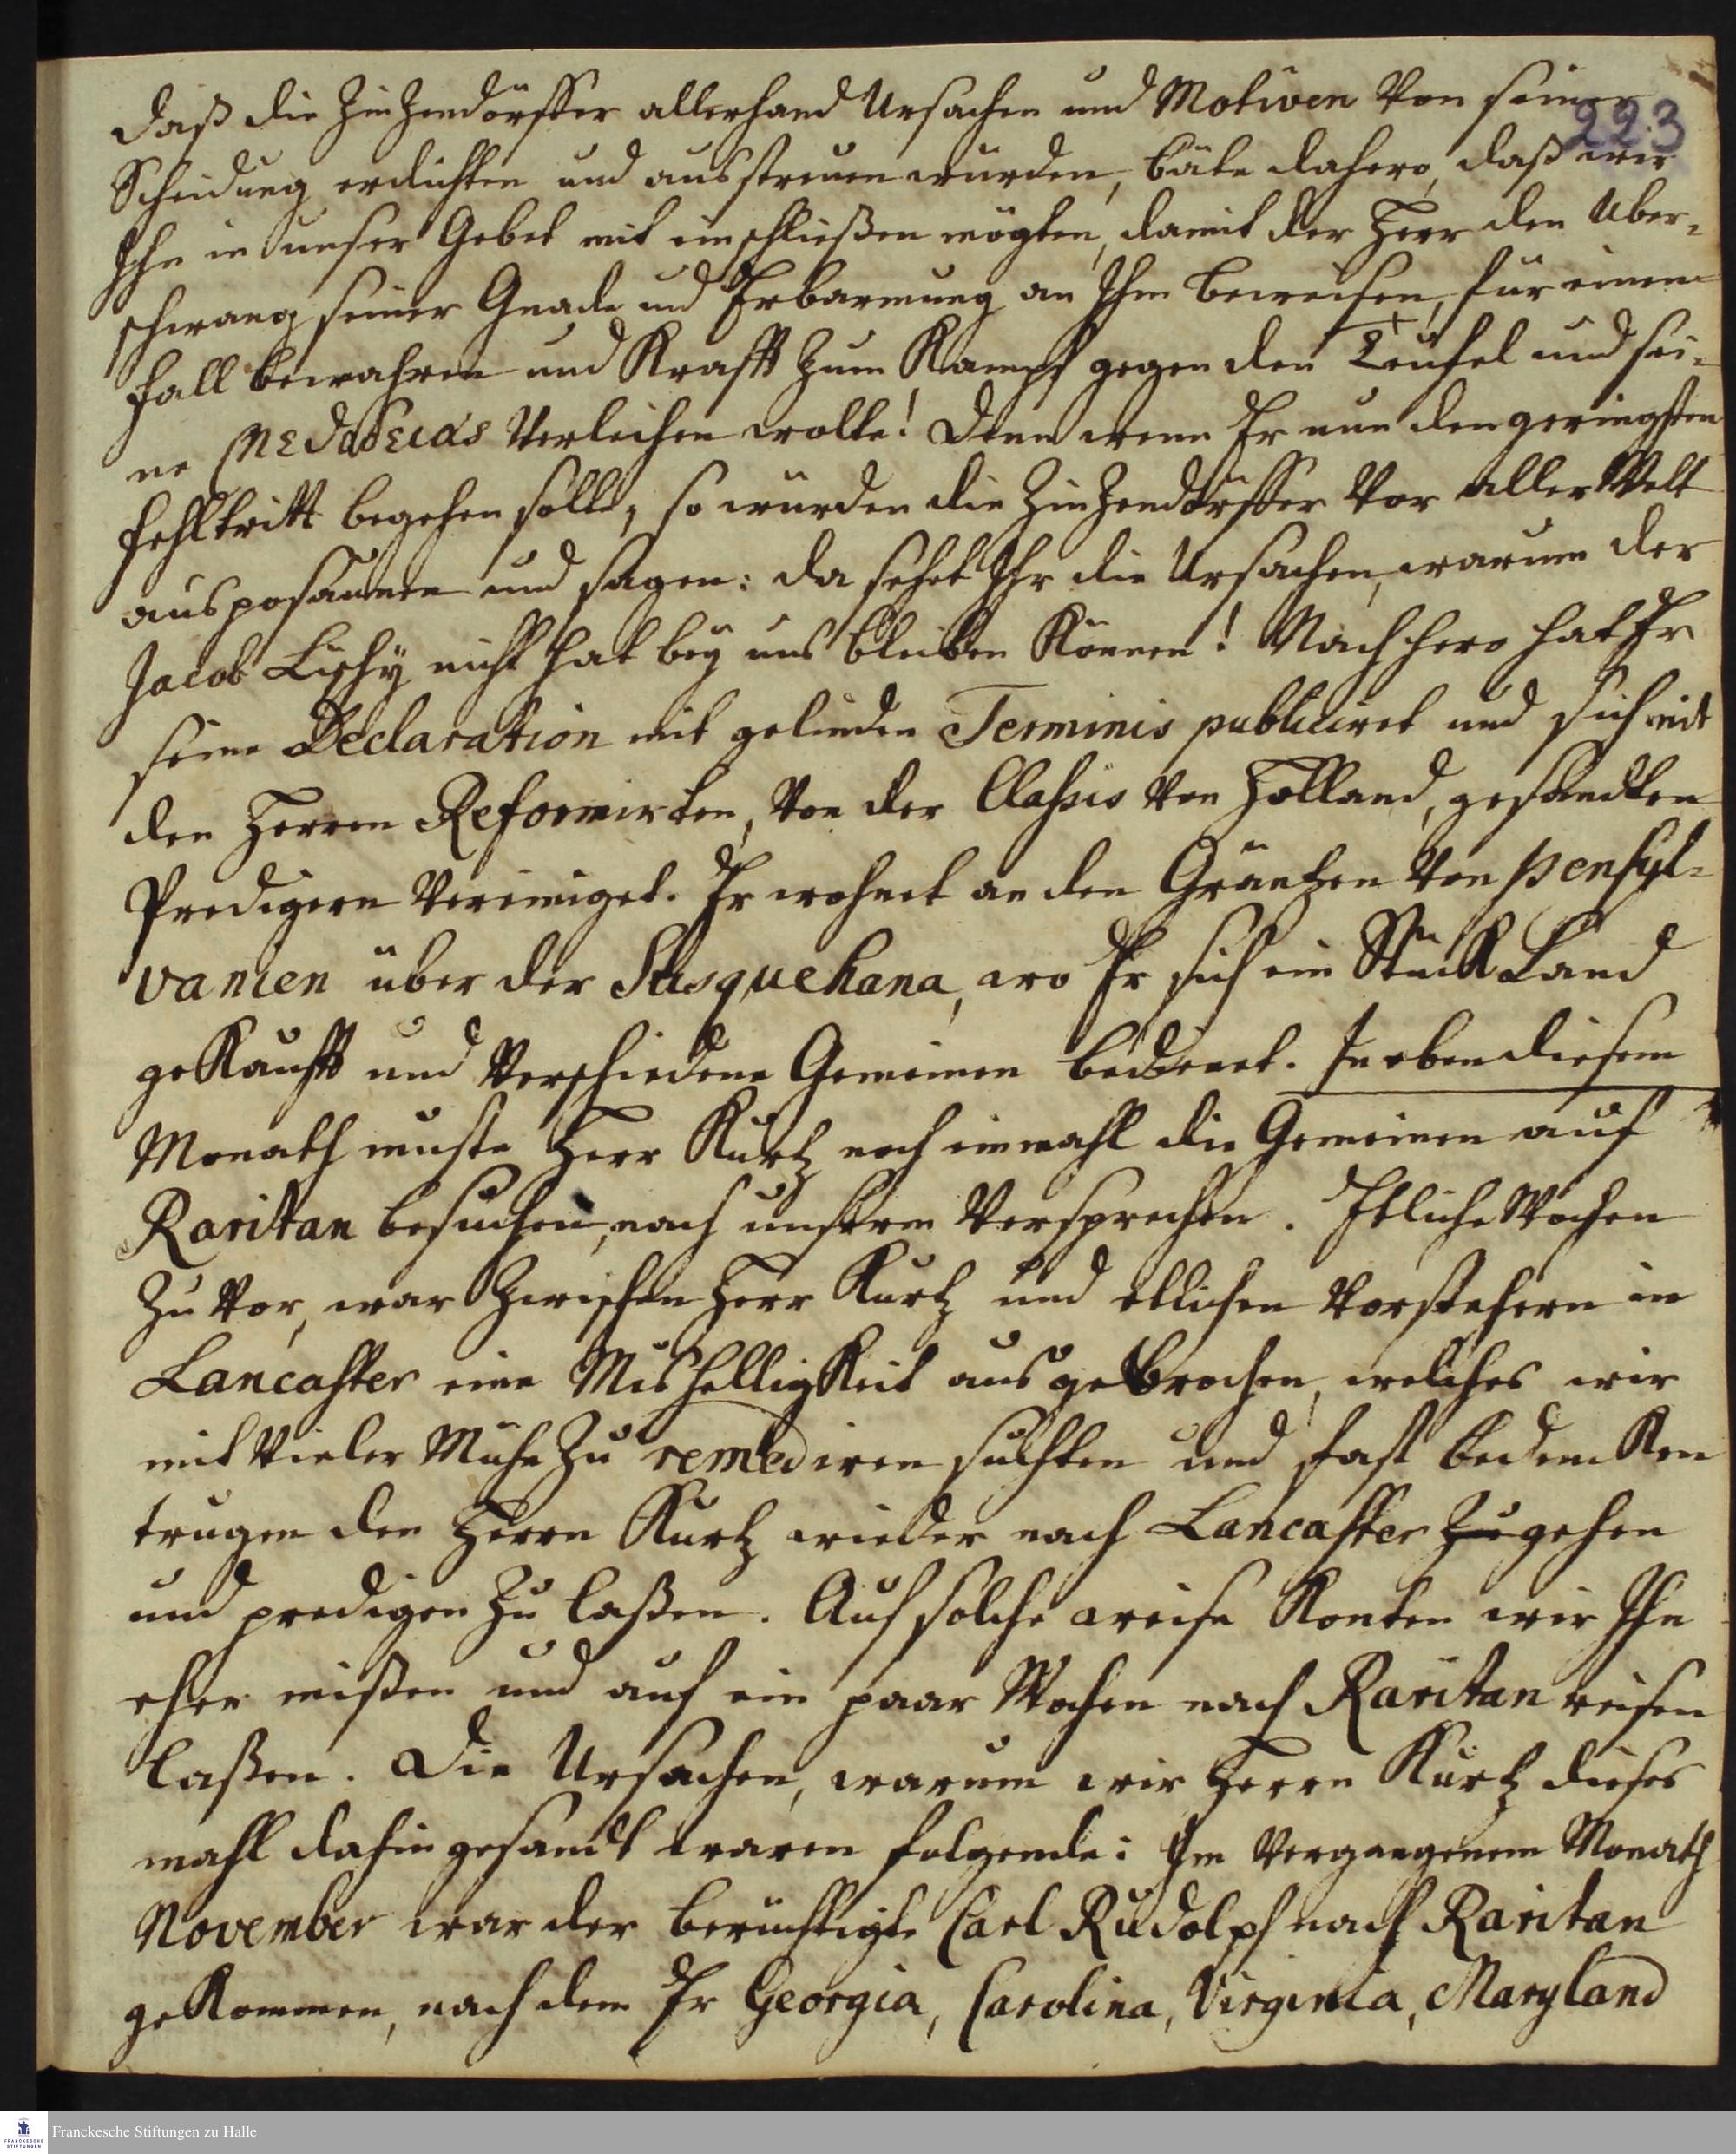 daß die Zinzendörffer allerhand Ursachen und Motiven von seiner
223
Scheidung erdichten und ausstreuen würden, bäte dahero, daß wir
Ihn in unser Gebet mit einschließen mögten, damit der Herr den Uber-
schwang seiner Gnade und Erbarmung an Ihm beweisen, für einem
Fall bewahren und Krafft zum Kampf gegen den Teufel und sei-
ne μεδοδείας verleihen wolle! Denn wenn Er nun den geringsten
Fehltritt begehen solle, so würden die Zinzendörffer vor aller Welt
ausposaunen und sagen: da sehet Ihr die Ursachen, warum der
Jacob Lischÿ nicht hat beÿ uns bleiben können! Nachhero hat Er
seine Declaration mit gelinden Terminis publiciret und sich mit
den Herren Reformirten, von der Classis von Holland, gesandten
Predigern vereiniget. Er wohnet an den Gräntzen von pensyl-
vanien über der Susquehana, wo Er sich ein Stück Land
gekaufft und verschiedene Gemeinen bedienet. In eben diesem
Monath muste Herr Kurtz noch einmahl die Gemeinen auf
Raritan besuchen, nach unserm Versprechen. Etliche Wochen
zu vor, war zwischen Herr Kurtz und etlichen Vorstehern in
Lancaster eine Mishelligkeit ausgebrochen, welches wir
mit vieler Mühe zu remediren suchten und fast bedencken
trugen den Herrn Kurtz wieder nach Lancaster zu gehen
und predigen zu laßen. Auf solche weise konten wir Ihn
eher mißen und auf ein paar Wochen nach Raritan reisen
laßen. Die Ursachen, warum wir Herrn Kurtz dieses
mahl dahin gesandt waren folgende: Im vergangenem Monath
November war der berüchtigte Carl Rudolph nach Raritan
gekommen, nach dem Er Georgia, Carolina, Virginia, Maryland
Franckesche Stiftungen zu Halle